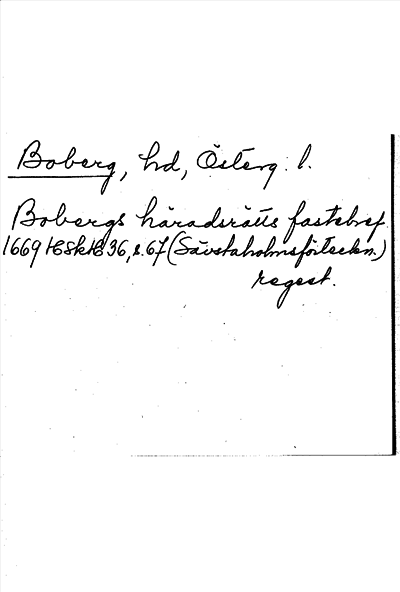 Boberg, hd, Österg. l.
Bobergs häradsrätts fastebref
1669 HSkH 36, s. 67 (Säfstaholmsförteckn.)
regest.